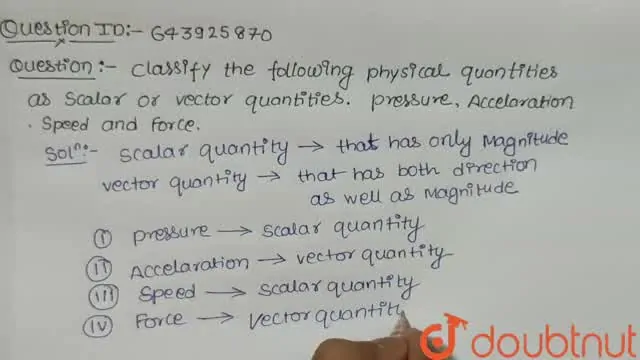 Question ID:- 643925870
Question:- Classify the following physical quantities
as Scalar or vector quantities. pressure, Accelaration
. Speed and Force.
Solⁿ:- Scalar quantity → that has only Magnitude
vector quantity → that has both direction
as well as Magnitude
(i) pressure → Scalar quantity
(ii) Accelaration → vector quantity
(iii) Speed → Scalar quantity
(iv) Force → Vector quantit
doubtnut